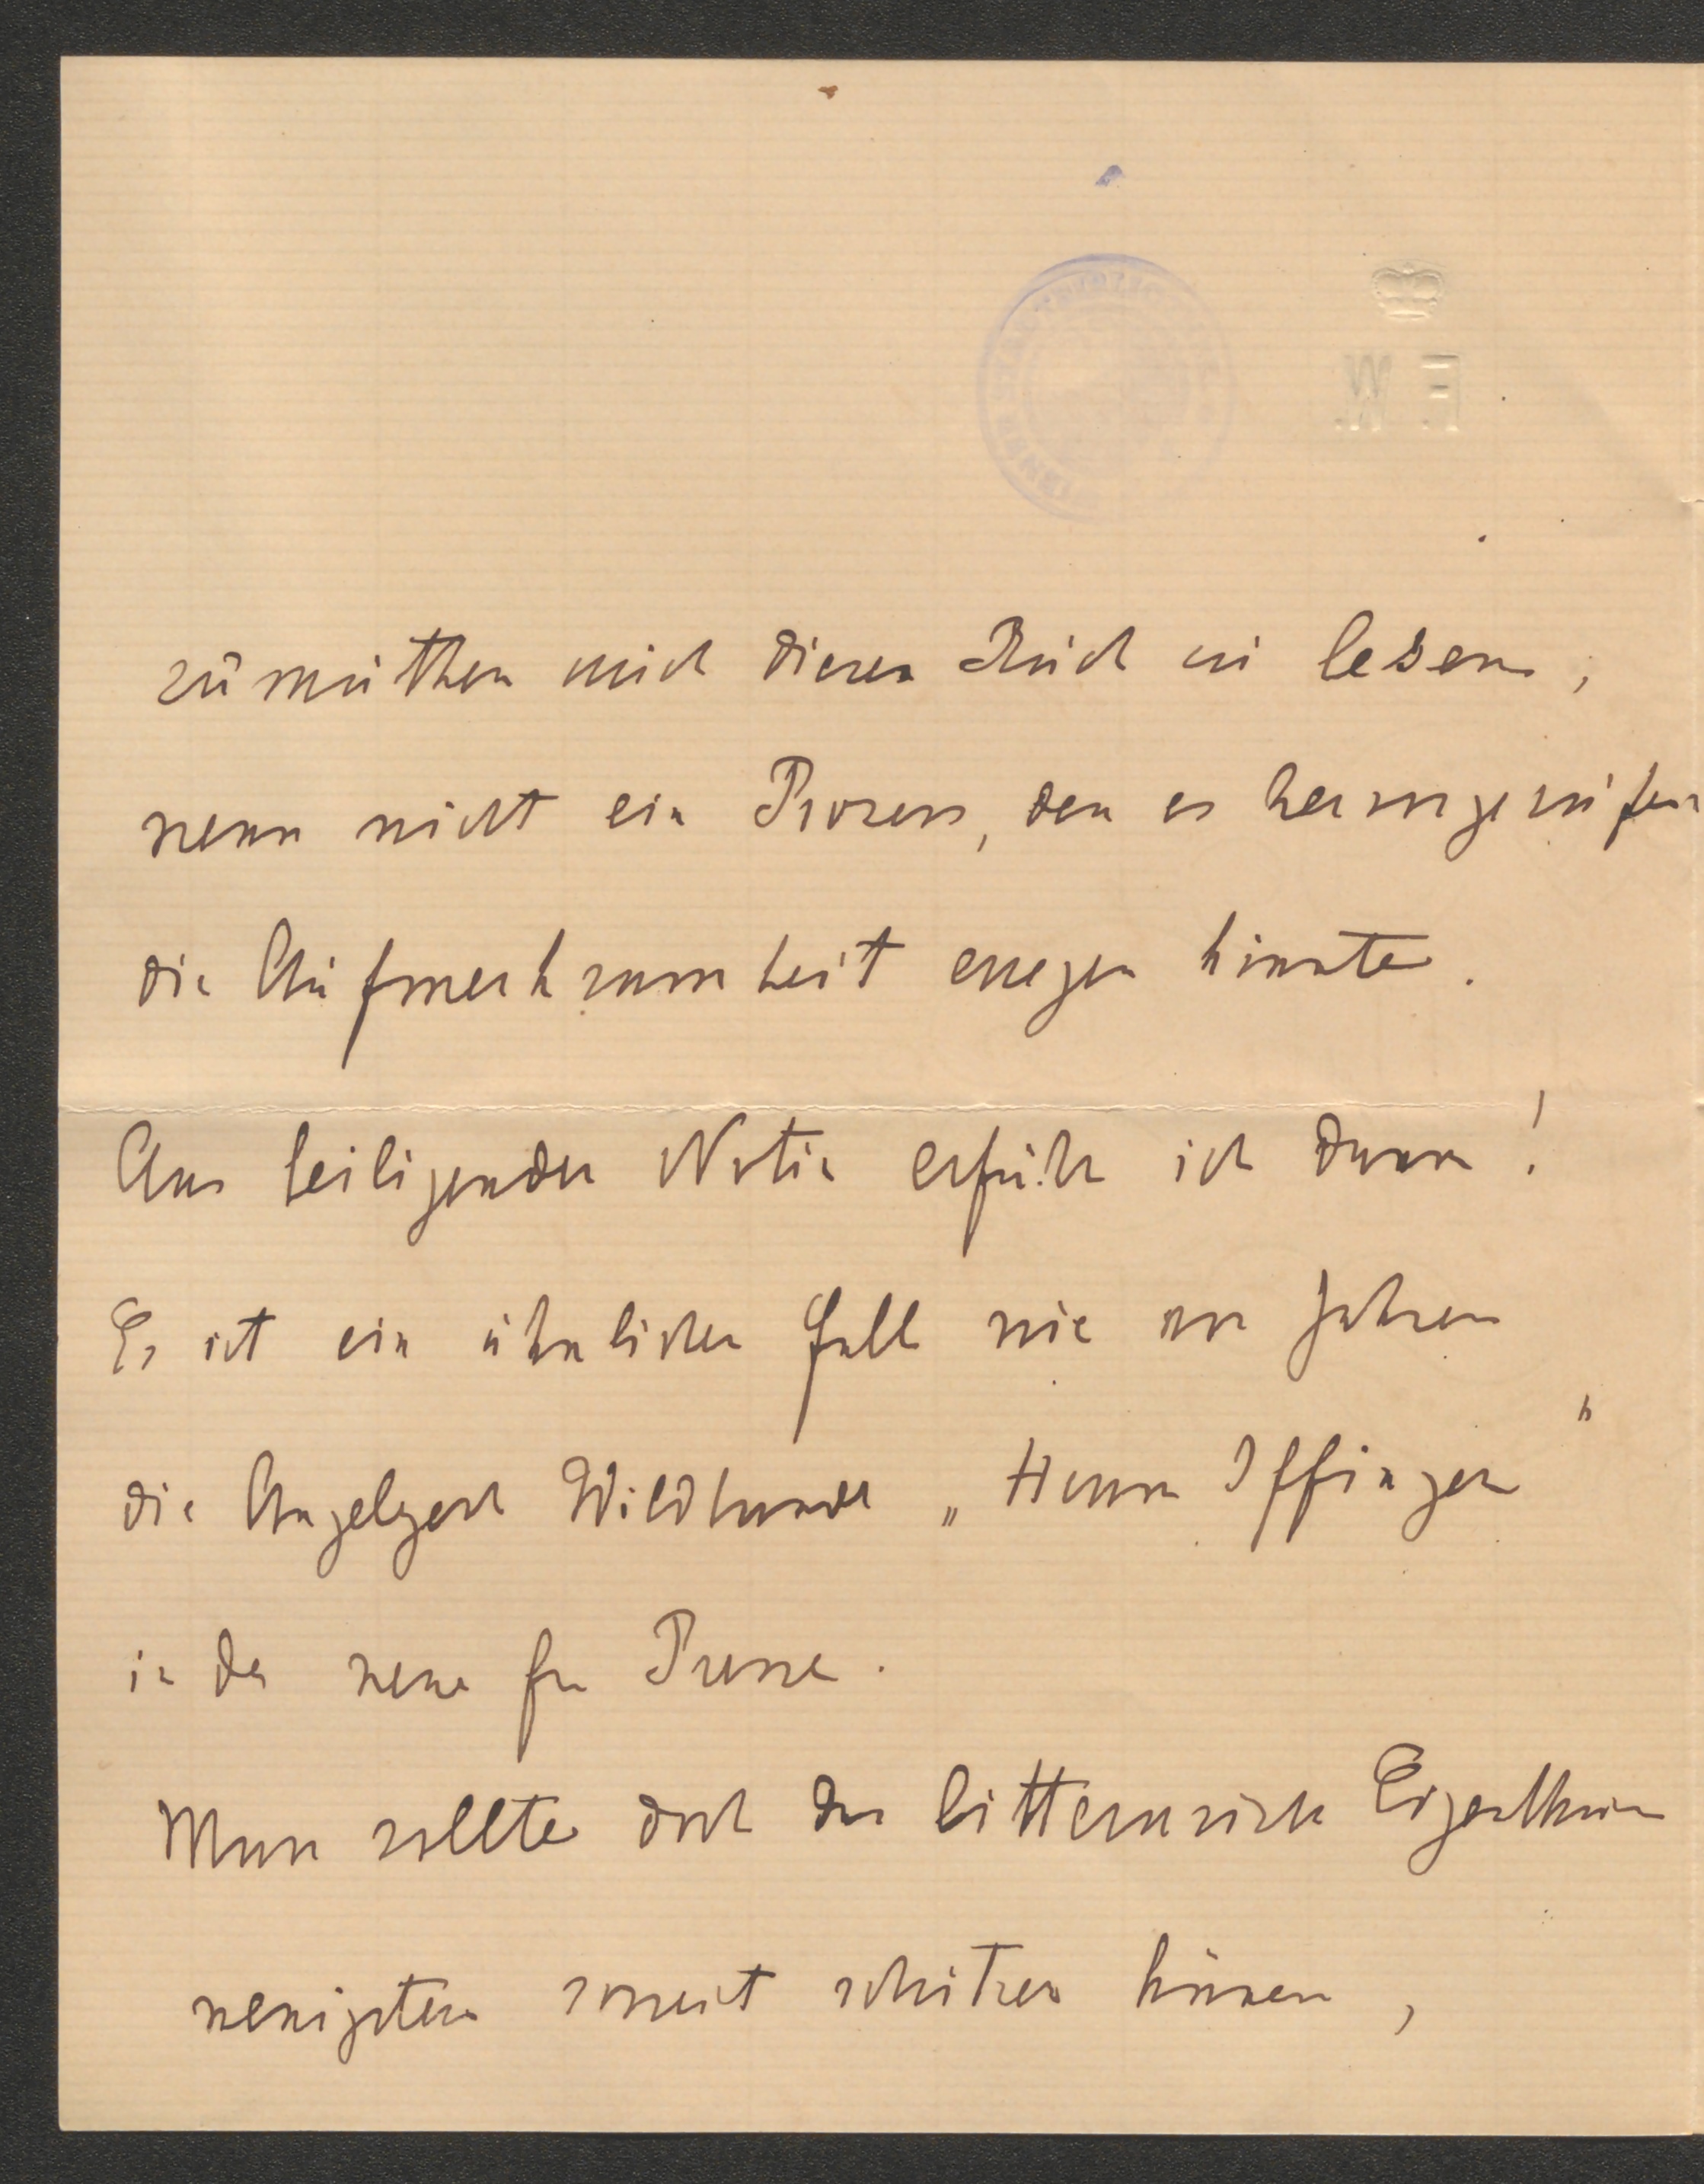 F. W.
zumuthen auch dieses Buch zu lesen,
wenn nicht ein Prozess, den es hervorgerufen
die Aufmerksamkeit erregen könnte.
Aus beiligender Notiz erfuhr ich davon!
Es ist ein ähnlicher Fall wie vor Jahren
die Angelegenh Wildbrandt „Herrn Iffinger"
in der neue fr Presse.
Man sollte doch das litterarische Eigenthum
wenigstens soweit schützen können,